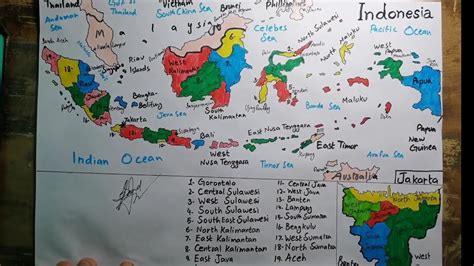 Thailand
Vietnam
Philippines
Brunei
Indonesia
Andaman Sea
Gulf of Thailand
South China Sea
Malaysia
Celebes Sea
North Sulawesi
Pacific Ocean
Banda Aceh
Riau Islands
West Kalimantan
North Maluku
West Papua
Bangka
Belitung
Java Sea
South Kalimantan
Maluku
Banda Sea
Papua
Jakarta
Bali
East Nusa Tenggara
Papua New Guinea
West Nusa Tenggara
East Timor
Arafua Sea
Indian Ocean
Timor Sea
Australia
Jakarta
1- Gorontalo
2- Central Sulawesi
3- West Sulawesi
4- South Sulawesi
5- South East Sulawesi
6- North Kalimantan
7- East Kalimantan
8- Central Kalimantan
9- East Java
11- Central Java
12- West Java
13- Banten
14- Lampung
15- South Sumatra
16- Bengkulu
17- West Sumatra
18- North Sumatra
19- Aceh
North Jakarta
Banten